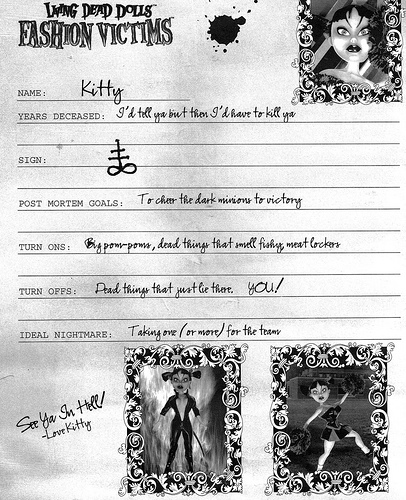 Living Dead Dolls
FASHION VICTIMS
NAME: Kitty
YEARS DECEASED: I'd tell ya but then I'd have to kill ya
SIGN:
POST MORTEM GOALS: To cheer the dark minions to victory
TURN ONS: Big pom-poms, dead things that smell fishy, meat lockers
TURN OFFS: Dead things that just lie there. YOU!
IDEAL NIGHTMARE: Taking one (or more) for the team
See Ya In Hell!
-Love Kitty